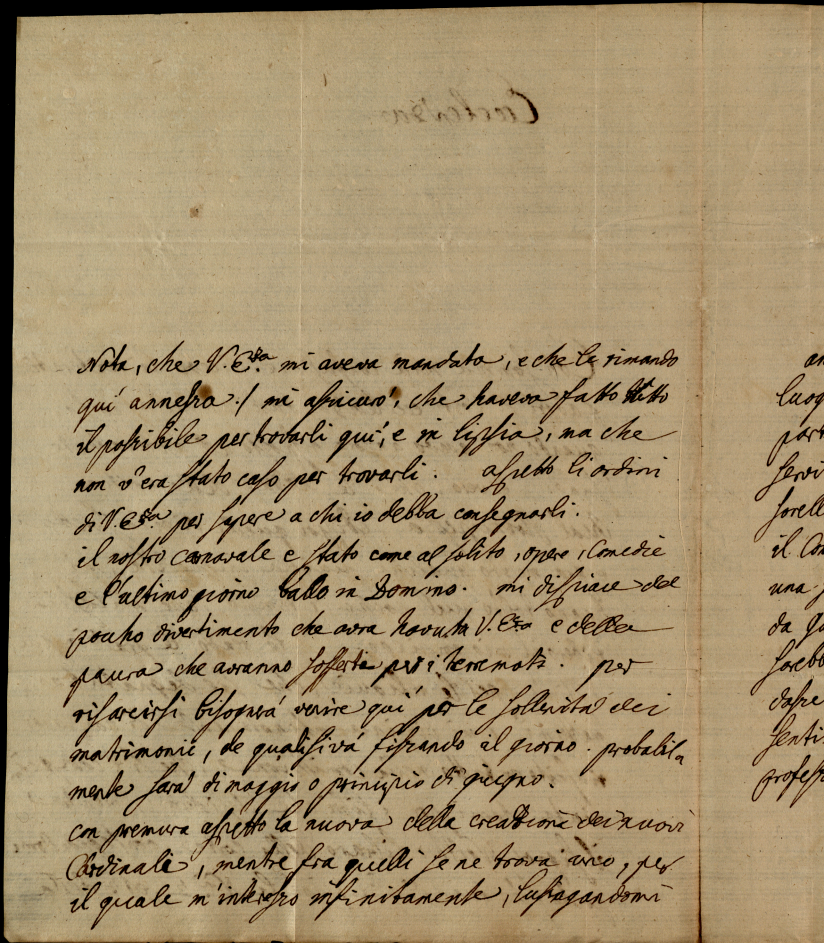 Nota, che V. Ecza mi aveva mandata, e che le rimando
qui annessa ./ mi assicurò, che haveva fatto tutto
il possibile per trovarli qui, e in lipsia, ma che
non v'era stato caso per trovarli. aspetto li ordini
di V. Ecza per sapere a chi io debba consegnarli.
il nostro carnavale e stato come al solito, opere, Comedie
e l'ultimo giorno ballo in Domino. mi dispiace del
pocho divertimento che avra havuta V. Ecza e della
paura che avranno sofferta per i teramoti. per
risarcirsi bisognerá venire qui per le sollenita dei
matrimonii, de quali si vá fissando il giorno. probabila
mente sará di maggio o principio di giugno.
con premura aspetto la nuova della creazione dei nuovi
Cardinali, mentre fra quelli se ne trova uno, per
il quale m'interesso infinitamente, lusingandomi
luog
part
servi
sorell
il Con
una
da
senti
profess